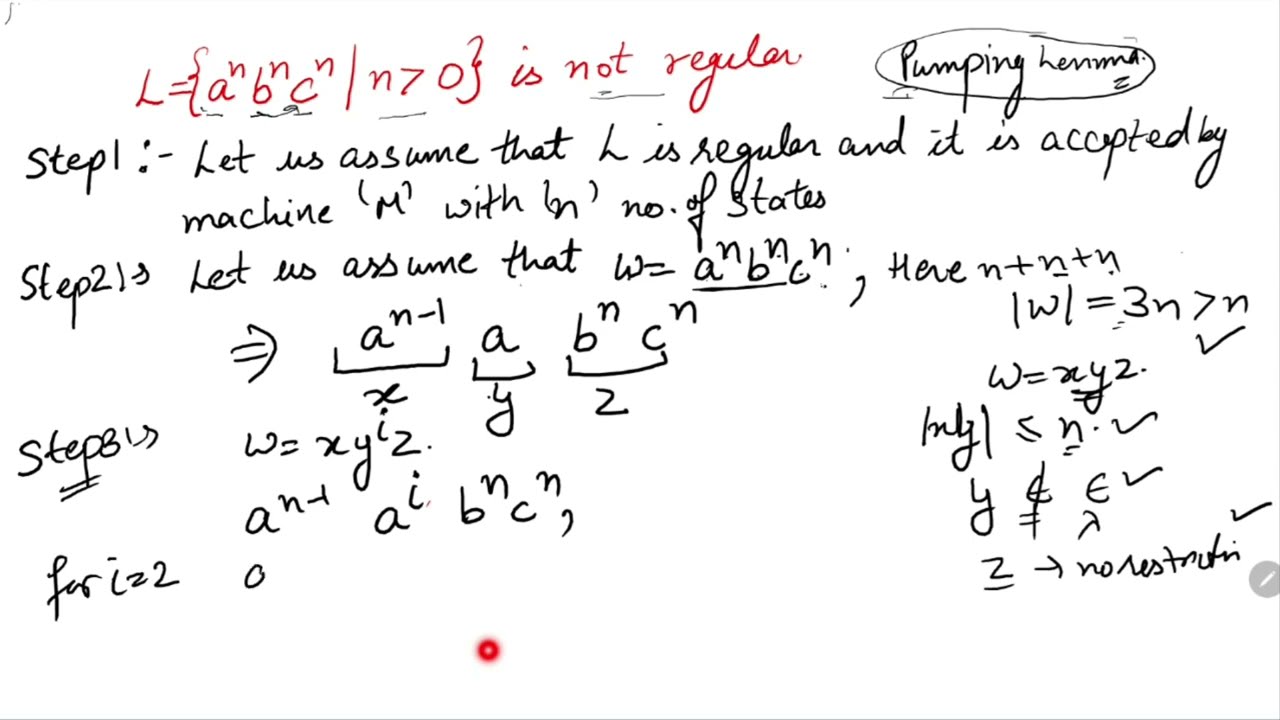 L={aⁿbⁿcⁿ | n>0} is not regular
Pumping Lemma.
Step1:- Let us assume that L is regular and it is accepted by
machine 'M' with 'n' no. of states
Step2:- Let us assume that w= aⁿbⁿcⁿ, Here n+n+n
|w| = 3n > n ✓
⇒ aⁿ⁻¹ a bⁿ cⁿ
x y z
w=xyz.
|xy| ≤ n. ✓
Step3:- w= xyⁱz.
y ∉ ∈ ✓
≠ λ
aⁿ⁻¹ aⁱ bⁿcⁿ,
z → no restriction ✓
for i=2 a